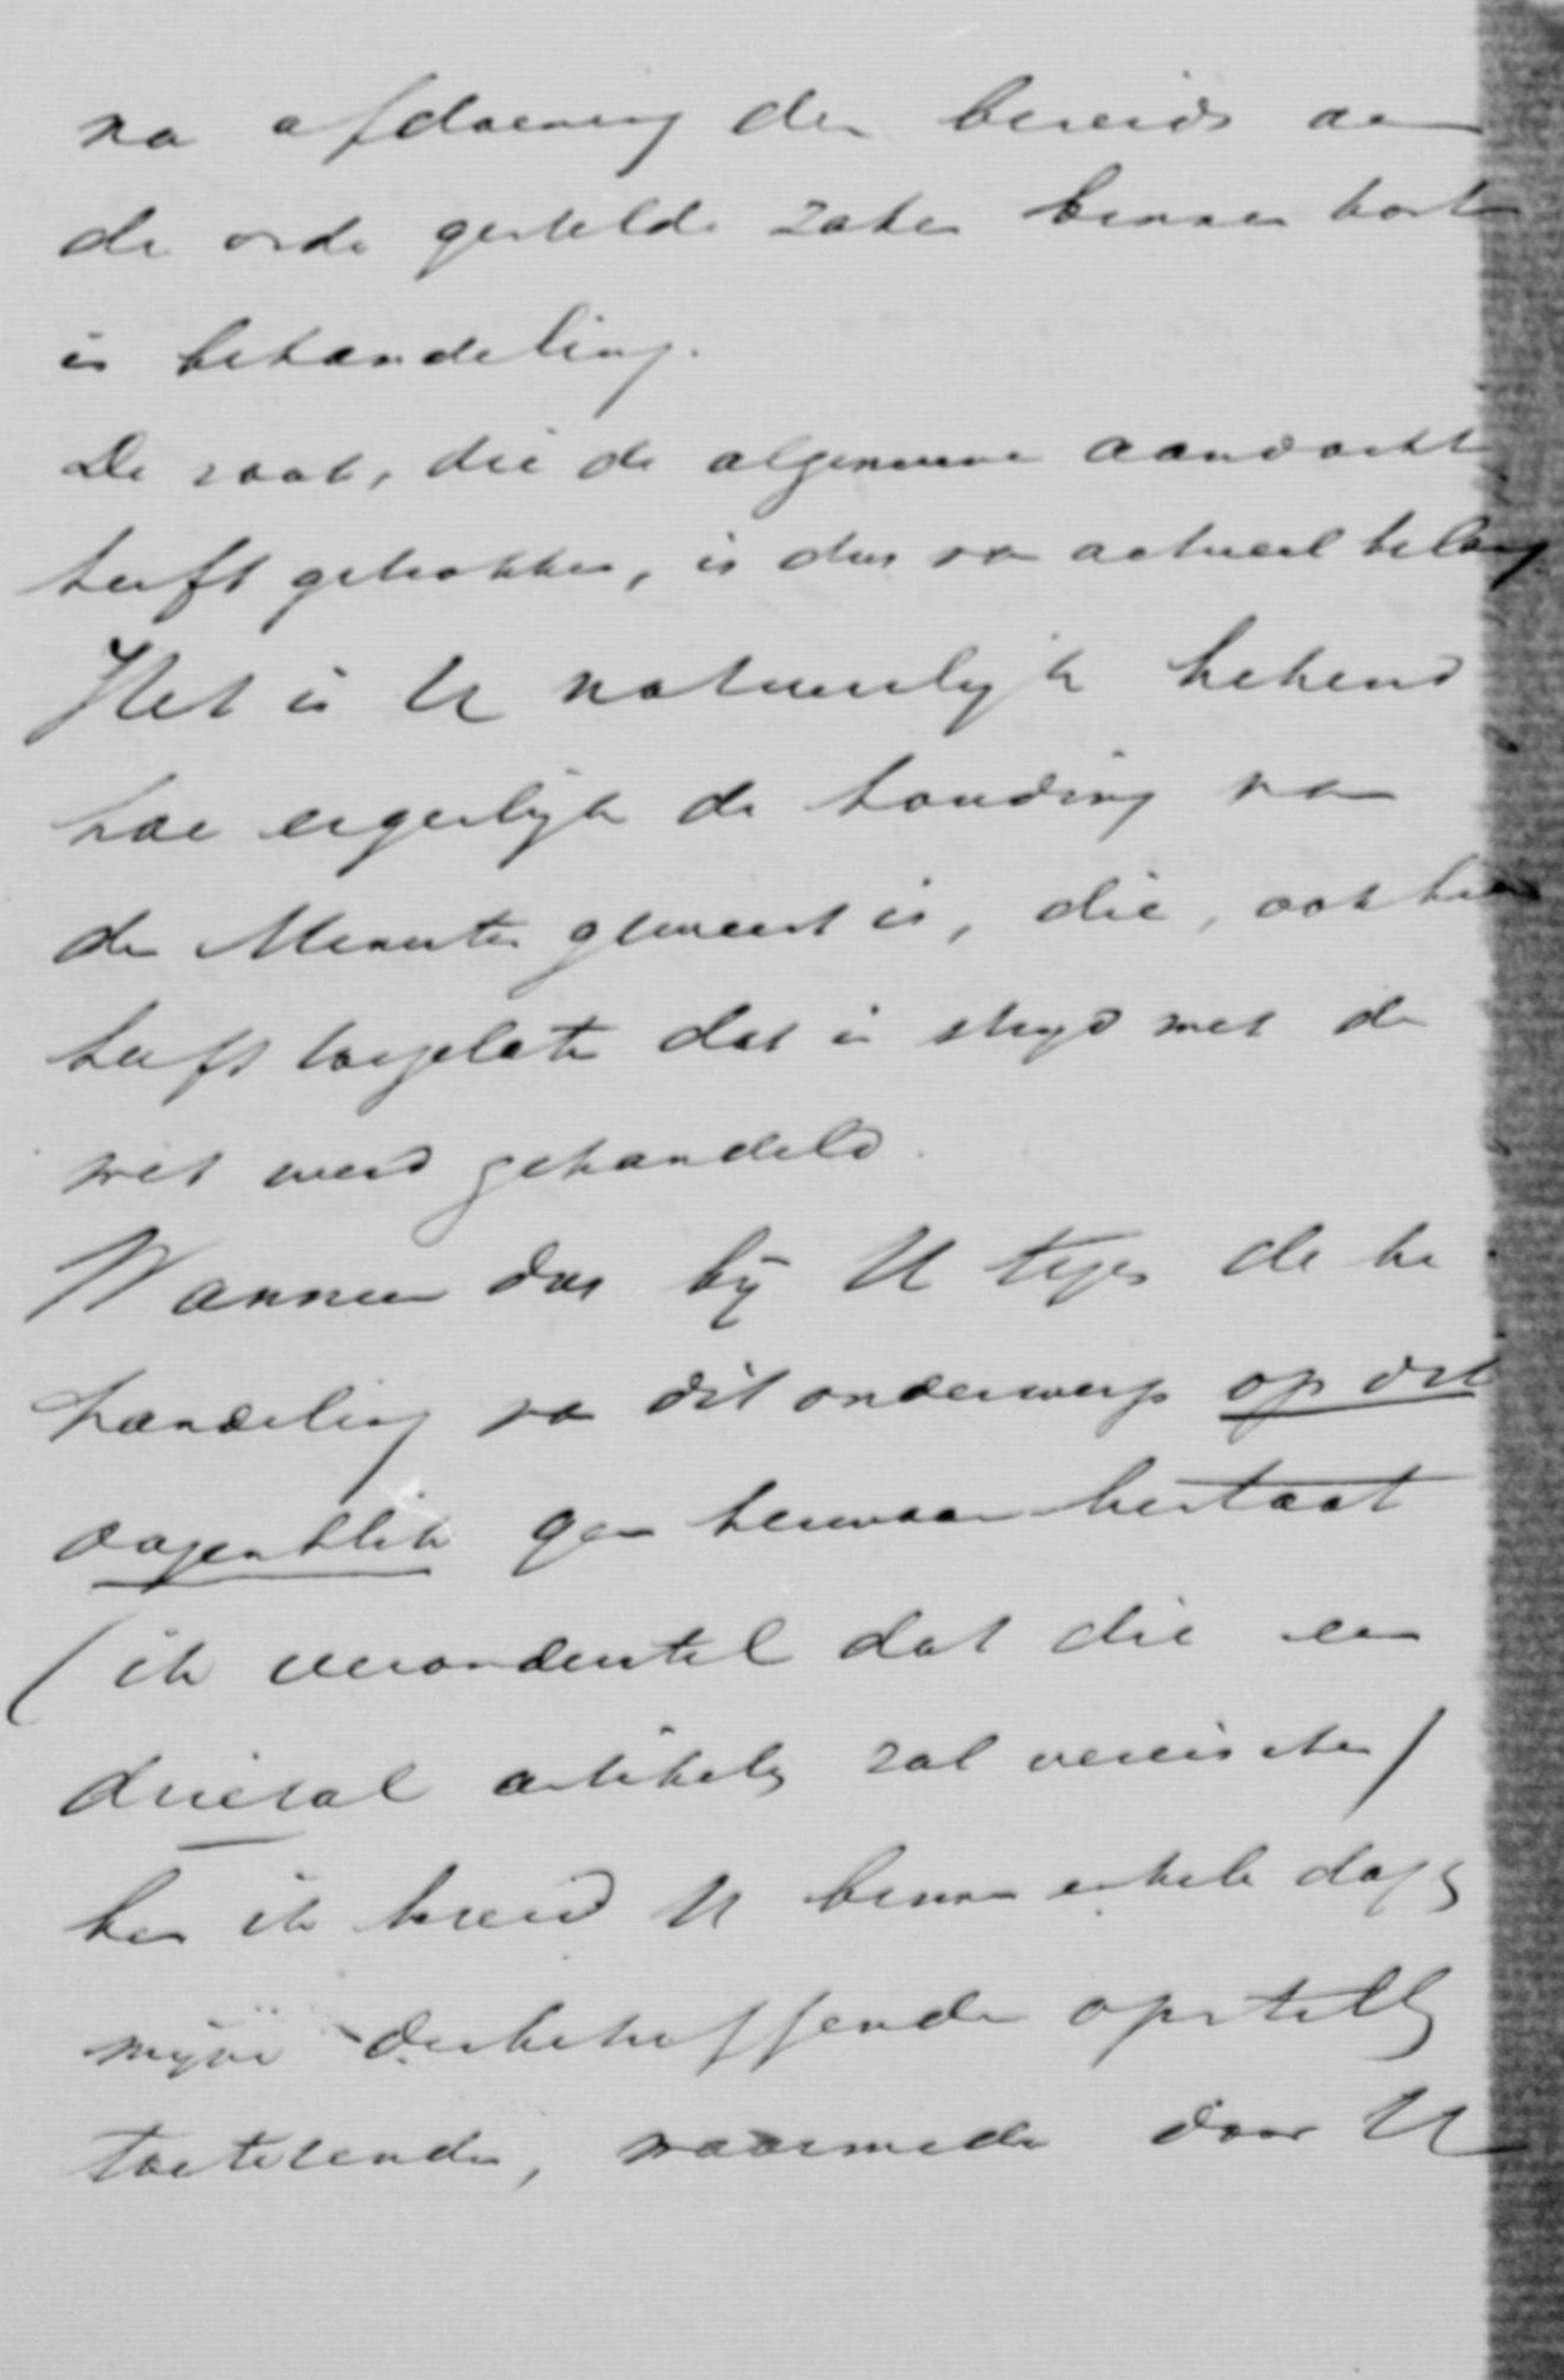 na afdoening der bereids aan
de orde gestelde zaken binnen kort
in behandeling.
De zaak, die de algemeene aandacht
heeft getrokken, is dus van actueel belang
Het is U natuurlijk bekend
hoe ergerlijk de houding van
den Minister geweest is, die, ook hier
heeft toegelaten dat in strijd met de
wet werd gehandeld.
Wanneer dus bij U tegen de be
handeling van dit onderwerp op dit
oogenblik geen bezwaar bestaat
(ik veronderstel dat die een
drietal artikelen zal vereischen)
ben ik bereid U binnen enkele dagen
mijne desbetreffende opstellen
toetezenden, waarmede door U